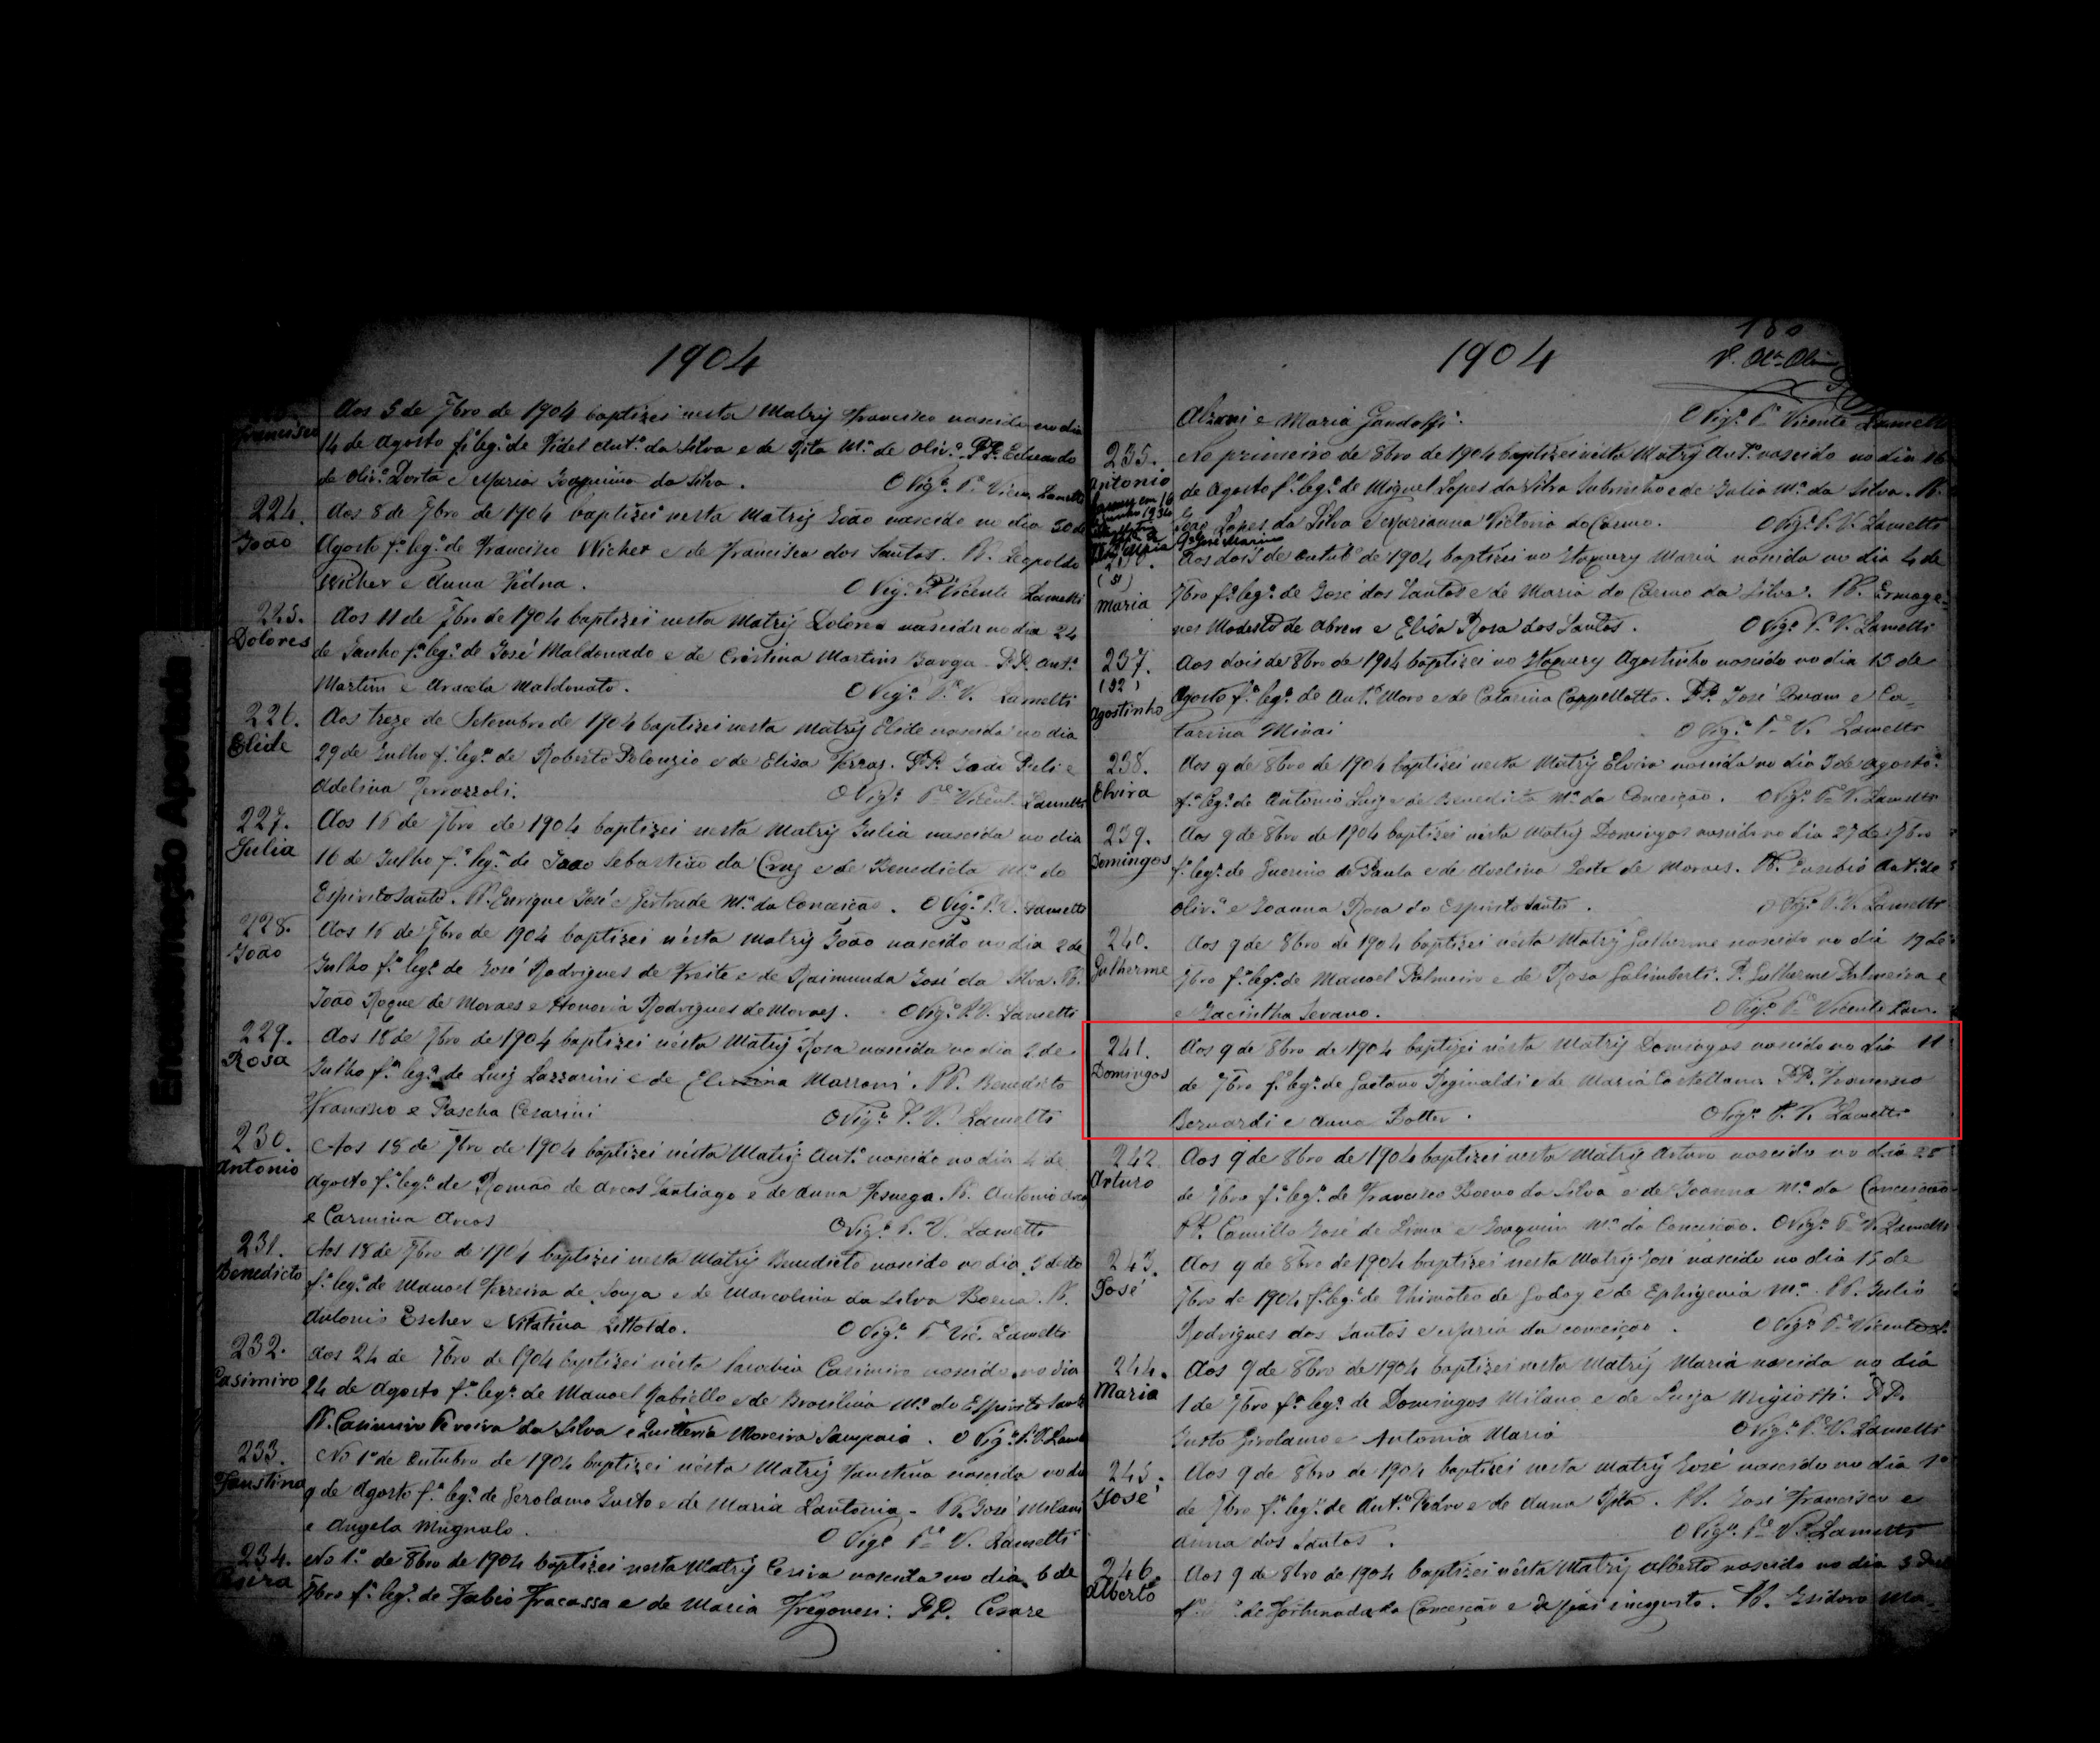 1904
Francisco
Aos 5 de 7bro de 1904 baptizei nesta Matriz Francisco nascido no dia
14 de Agosto fº legº de Fidel Antº da Silva e de Rita Mª de Olivª. PP. Eduardo
de Olivª Dorta e Maria Joaquina da Silva. O Vigº Pe Vicen. Lametti
224.
João
Aos 8 de 7bro de 1904 baptizei nesta Matriz João nascido no dia 30 de
Agosto fº legº de Francisco Wicher e de Francisca dos Santos. PP. Leopoldo
Wicher e Anna Vidna. O Vigº Pe Vicente Lametti
225.
Dolores
Aos 11 de 7bro de 1904 baptizei nesta Matriz Dolores nascida no dia 24
de Junho fª legª de José Maldonado e de Cristina Martins Barga. PP. Antº
Martim e Aracela Maldonato. O Vigº Pe V. Lametti
226.
Elide
Aos treze de Setembro de 1904 baptizei nesta Matriz Elide nascida no dia
29 de Julho fª legª de Roberto Polonzio e de Elisa Ferraz. PP. João Peli e
Adelina Terrazzoli. O Vigº Pe Vicent. Lametti
227.
Julia
Aos 16 de 7bro de 1904 baptizei nesta Matriz Julia nascida no dia
16 de Julho fª legª de João Sebastião da Cruz e de Benedicta Mª do
Espirito Santo. PP. Enrique José e Gertrude Mª da Conceição. O Vigº P. V. Lametti
228.
João
Aos 16 de 7bro de 1904 baptizei nésta Matriz João nascido no dia 2 de
Julho fº legº de José Rodrigues de Freite e de Raimunda José da Silva. PP.
João Roque de Moraes e Honoria Rodrigues de Moraes. O Vigº P. V. Lametti
229.
Rosa
Aos 18 de 7bro de 1904 baptizei nésta Matriz Rosa nascida no dia 2 de
Julho fª legª de Luiz Lazzarini e de Elerina Marroni. PP. Benedicto
Francisco e Pascha Cesarini O Vigº P. V. Lametti
230.
Antonio
Aos 18 de 7bro de 1904 baptizei nésta Matriz Antº nascido no dia 4 de
Agosto fº legº de Romão de Arcos Santiago e de Anna Fesuega. PP. Antonio Arcos
e Carmina Arcos O Vigº P. V. Lametti
231.
Benedicto
Aos 18 de 7bro de 1904 baptizei nesta Matriz Benedicto nascido no dia 3 desto
fº legº de Manoel Ferreira de Souza e de Marcolina da Silva Boena. PP.
Antonio Escher e Vitatina Littoldo. O Vigº Pe Vic. Lametti
232.
Casimiro
Aos 24 de 7bro de 1904 baptizei nésta Casimiro nascido no dia
24 de Agosto fº legº de Manoel Rabiello e de Brasilina Mª do Espirito Santo
PP. Casimiro Pereira da Silva e Quitteria Moreira Sampaio. O Vigº P. V. Lametti
233.
Faustina
No 1º de Outubro de 1904 baptizei nésta Matriz Faustina nascida no dia
9 de Agosto fª legª de Gerolamo Justo e de Maria Santonia. PP. José Milani
e Angela Mugnalo. O Vigº Pe V. Lametti
234.
No 1º de 8bro de 1904 baptizei nesta Matriz Cesira nascida no dia 6 de
7bro fª legª de Fabio Fracassa e de Maria Fregonesi. PP. Cesare
1904
180
Alzani e Maria Gandolfi. O Vigº Pe Vicente Lametti
235.
Antonio
No primeiro de 8bro de 1904 baptizei nésta Matriz Antº nascido no dia 16
de Agosto fº legº de Miguel Lopes da Silva Subrinho e de Julia Mª da Silva. PP.
João Lopes da Silva e Marianna Victoria do Carmo. O Vigº P. V. Lametti
236.
Maria
Aos dois de Outubº de 1904 baptizei no Itapury Maria nascida no dia 4 de
7bro fª legª de José dos Santos e de Maria do Carmo da Silva. PP. Ermoge-
nes Modesto de Abreu e Elisa Rosa dos Santos. O Vigº P. V. Lametti
237.
(52)
Agostinho
Aos dois de 8bro de 1904 baptizei no Itapury Agostinho nascido no dia 13 de
Agosto fº legº de Antº Moro e de Catarina Cappellatto. PP. José Buam e Ca-
tarina Minai O Vigº Pe V. Lametti
238.
Elvira
Aos 9 de 8bro de 1904 baptizei nesta Matriz Elvira nascida no dia 3 de Agosto
fª legª de Antonio Luiz e de Benedicta Mª da Conceição. O Vigº Pe V. Lametti
239.
Domingos
Aos 9 de 8bro de 1904 baptizei nésta Matriz Domingos nascido no dia 27 de 7bro
fº legº de Guerino de Paula e de Avelina Leite de Moraes. PP. Eusebio Antº de
Olivª e Joanna Rosa do Espirito Santo. O Vigº P. V. Lametti
240.
Gulherme
Aos 9 de 8bro de 1904 baptizei nésta Matriz Gulherme nascido no dia 19 de
7bro fº legº de Manoel Palmeiro e de Rosa Galimberti. P. Gulherme Palmeira e
e Jacintha Sevano. O Vigº Pe Vicente Lam.
241.
Domingos
Aos 9 de 8bro de 1904 baptizei nésta Matriz Domingos nascido no dia 11
de 7bro fº legº de Gaetano Reginaldi e de Maria Castellana. PP. Francisco
Bernardi e Anna Botter. O Vigº P. V. Lametti
242.
Arturo
Aos 9 de 8bro de 1904 baptizei nesta Matriz Arturo nascido no dia 25
de 7bro fº legº de Francisco Bueno da Silva e de Joanna Mª da Conceição
PP. Camillo José de Lima e Joaquina Mª da Conceição. O Vigº Pe V. Lametti
243.
José
Aos 9 de 8bro de 1904 baptizei nesta Matriz José nascido no dia 15 de
7bro de 1904 fº legº de Thimoteo de Godoy e de Ephigenia Mª. PP. Julio
Rodrigues dos Santos e Maria da Conceição. O Vigº Pe Vicente L.
244.
Maria
Aos 9 de 8bro de 1904 baptizei nesta Matriz Maria nascida no dia
1 de 7bro fª legª de Domingos Milano e de Luiza Migiotti. PP.
Justo Girolamo e Antonia Maria O Vigº Pe V. Lametti
245.
José
Aos 9 de 8bro de 1904 baptizei nesta Matriz José nascido no dia 1º
de 7bro fº legº de Antº Pedro e de Anna Rita. PP. José Francisco e
Anna dos Santos. O Vigº Pe V. Lametti
246.
Alberto
Aos 9 de 8bro de 1904 baptizei nésta Matriz Alberto nascido no dia 3
fº de Fortunada da Conceição e de pai incognito. PP. Esidoro Ma-